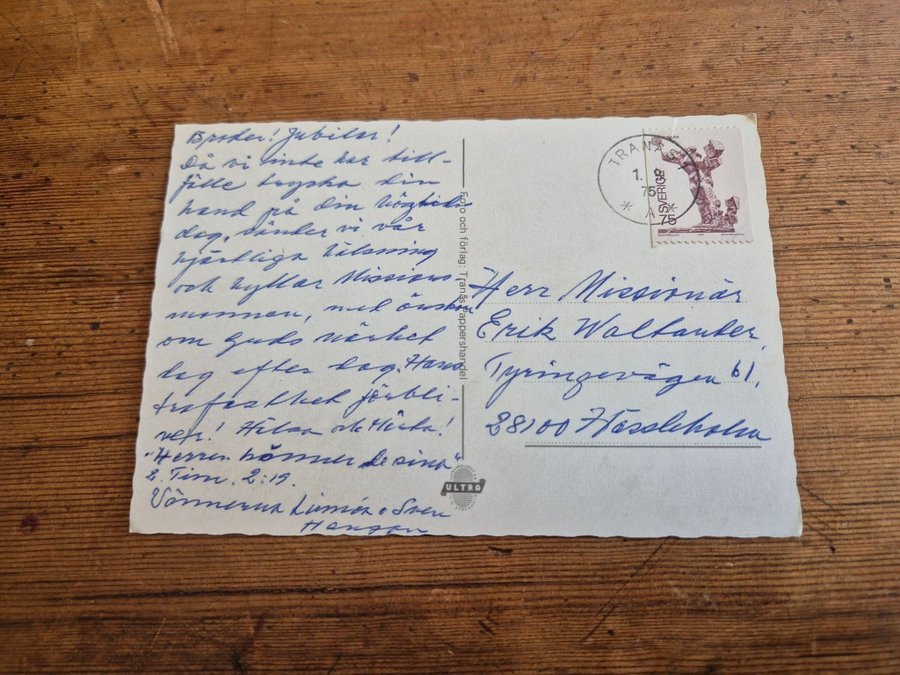 Broder! Jubilar!
Då vi inte har till-
fälle trycka din
hand på din högtids-
dag, sänder vi vår
hjärtliga hälsning
och hyllar Missions-
mannen, med önskan
om Guds närhet
dag efter dag. Hans
trofasthet förbli-
ver! Hälsa de kära!
"Herren känner de sina"
2. Tim. 2:19.
Vännerna o Sven
Hanson
Foto och förlag: Tranås Pappershandel
ULTRA
TRANÅS
1.
75
* A *
SVERIGE
75
Herr Missionär
Erik Wallander,
Tyringevägen 61,
28100 Hässleholm